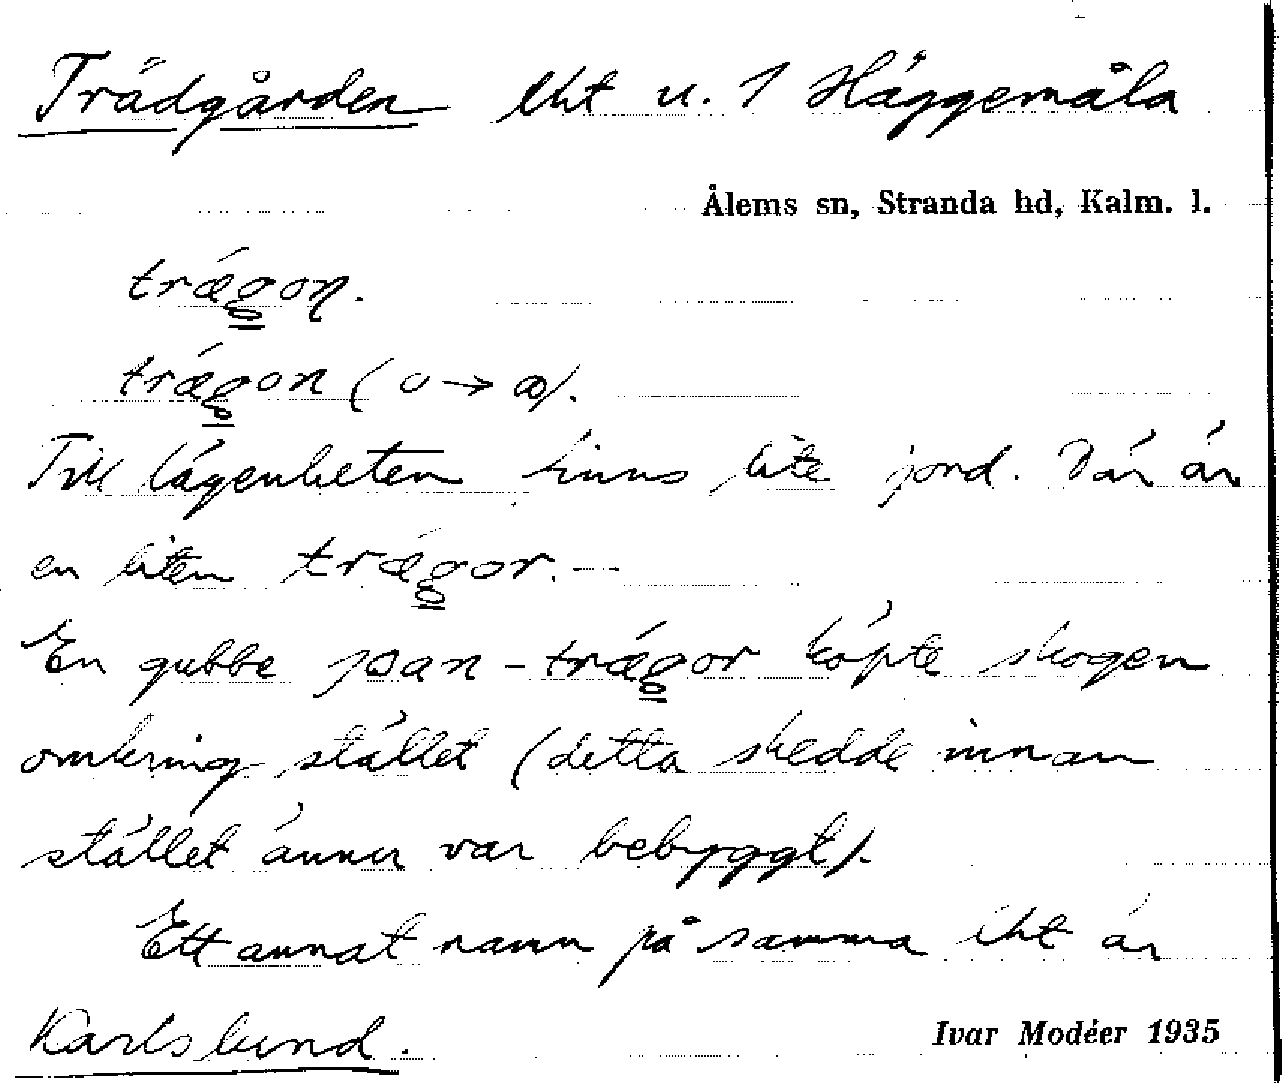 Trädgården lht u. 1 Häggemåla
Ålems sn, Stranda hd, Kalm. l.
trǽgon.
trǽgon (o → ꝏ).
Till lägenheten finns lite jord. Där är
en liten trǽgor. —
En gubbe joan-trǽgor köpte skogen
omkring stället (detta skedde innan
stället ännu var bebyggt).
Ett annat namn på samma lht är
Karlslund.
Ivar Modéer 1935